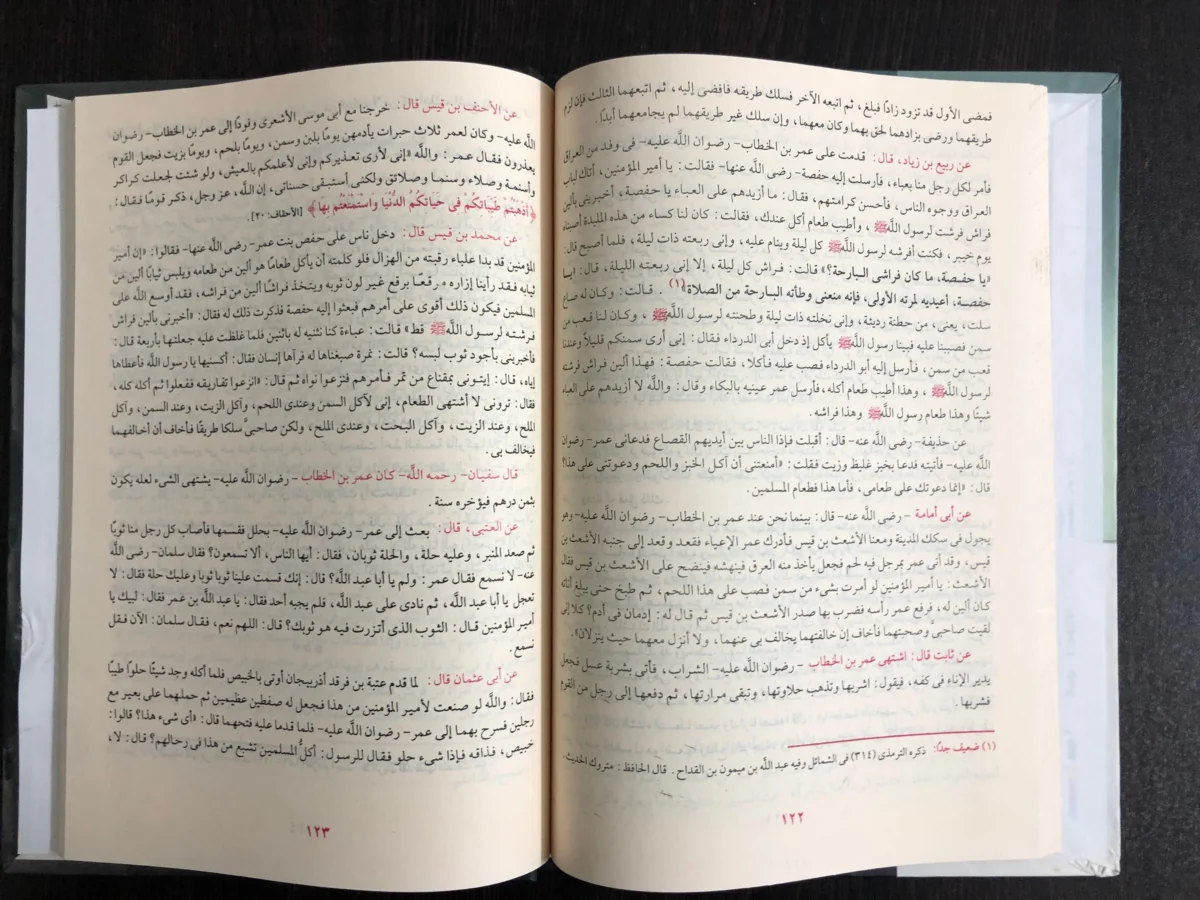 فمضى الأول قد تزود زادًا فبلغ، ثم اتبعه الآخر فسلك طريقه فافضى إليه، ثم اتبعهما الثالث فإن لزم
طريقهما ورضى بزادهما لحق بهما وكان معهما، وإن سلك غير طريقهما لم يجامعهما أبدًا.
عن ربيع بن زياد، قال: قدمت على عمر بن الخطاب- رضوان اللَّه عليه- فى وفد من العراق
فأمر لكل رجل منا بعباء، فأرسلت إليه حفصة- رضى اللَّه عنها- فقالت: يا أمير المؤمنين، أتاك لباب
العراق ووجوه الناس، فأحسن كرامتهم، فقال: ما أزيدهم على العباء يا حفصة، أخبرينى بألين
فراش فرشت لرسول اللَّه ﷺ، وأطيب طعام أكل عندك، فقالت: كان لنا كساء من هذه الملبدة أصبناه
يوم خيبر، فكنت أفرشه لرسول اللَّه ﷺ كل ليلة وينام عليه، وإنى ربعته ذات ليلة، فلما أصبح قال:
«يا حفصة، ما كان فراشى البارحة؟» قالت: فراش كل ليلة، إلا إنى ربعته الليلة، قال: «يا
حفصة، أعيديه لمرته الأولى، فإنه منعنى وطأته البارحة من الصلاة»(١). قالت: وكان له صاع
سلت، يعنى، من حطنة رديئة، وإنى نخلته ذات ليلة وطحنته لرسول اللَّه ﷺ، وكان لنا قعب من
سمن فصببنا عليه فبينا رسول اللَّه ﷺ يأكل إذ دخل أبى الدرداء فقال: إنى أرى سمنكم قليلاً وعندنا
قعب من سمن، فأرسل إليه أبو الدرداء فصب عليه فأكلا، فقالت حفصة: فهذا ألين فراش فرشته
لرسول اللَّه ﷺ، وهذا أطيب طعام أكله، فأرسل عمر عينيه بالبكاء وقال: واللَّه لا أزيدهم على العباء
شيئًا وهذا طعام رسول اللَّه ﷺ وهذا فراشه.
عن حذيفة- رضى اللَّه عنه- قال: أقبلت فإذا الناس بين أيديهم القصاع فدعانى عمر- رضوان
اللَّه عليه- فأتيته فدعا بخبز غليظ وزيت فقلت: «أمنعتنى أن آكل الخبز واللحم ودعوتنى على هذا؟
قال: «إنما دعوتك على طعامى، فأما هذا فطعام المسلمين.
عن أبى أمامة - رضى اللَّه عنه- قال: بينما نحن عند عمر بن الخطاب- رضوان اللَّه عليه- وهو
يجول فى سكك المدينة ومعنا الأشعث بن قيس فأدرك عمر الإعياء فقعد وقعد إلى جنبه الأشعث بن
قيس، وقد أتى عمر بمرجل فيه لحم فجعل يأخذ منه العرق فينهشه فينضح على الأشعث بن قيس فقال
الأشعث: يا أمير المؤمنين لو أمرت بشىء من سمن فصب على هذا اللحم، ثم طبخ حتى يبلغ أناته
كان ألين له، فرفع عمر رأسه فضرب بها صدر الأشعث بن قيس ثم قال له: إدمان فى أدم؟ كلا إنى
لقيت صاحبىَّ وصحبتهما فأخاف إن خالفتهما يخالف بى عنهما، ولا أنزل معهما حيث ينزلان».
عن ثابت قال: اشتهى عمر بن الخطاب - رضوان اللَّه عليه- الشراب، فأتى بشربة عسل فجعل
يدير الإناء فى كفه، فيقول: اشربها وتذهب حلاوتها، وتبقى مرارتها، ثم دفعها إلى رجل من القوم
فشربها.
(١) ضعيف جدًا: ذكره الترمذى (٣١٤) فى الشمائل وفيه عبد اللَّه بن ميمون بن القداح. قال الحافظ: متروك الحديث.
١٢٢
عن الأحنف بن قيس قال: خرجنا مع أبى موسى الأشعرى وفودًا إلى عمر بن الخطاب- رضوان
اللَّه عليه- وكان لعمر ثلاث خبزات يأدمهن يومًا بلبن وسمن، ويومًا بلحم، ويومًا بزيت فجعل القوم
يعذرون فقال عمر: واللَّه «إنى لأرى تعذيركم وإنى لأعلمكم بالعيش، ولو شئت لجعلت كراكر
وأسنمة وصلاء وسنما وصلائق ولكنى أستبقى حسناتى، إن اللَّه، عز وجل، ذكر قومًا فقال:
﴿أَذْهَبْتُمْ طَيِّبَاتِكُمْ فِي حَيَاتِكُمُ الدُّنْيَا وَاسْتَمْتَعْتُم بِهَا﴾ [الأحقاف: ٢٠].
عن محمد بن قيس قال: دخل ناس على حفص بنت عمر- رضى اللَّه عنها- فقالوا: «إن أمير
المؤمنين قد بدا علباء رقبته من الهزال فلو كلمته أن يأكل طعامًا هو ألين من طعامه ويلبس ثيابًا ألين من
ثيابه فقد رأينا إزاره مرقعًا برقع غير لون ثوبه ويتخذ فراشًا ألين من فراشه، فقد أوسع اللَّه على
المسلمين فيكون ذلك أقوى على أمرهم فبعثوا إليه حفصة فذكرت ذلك له فقال: «أخبرنى بألين فراش
فرشته لرسول اللَّه ﷺ قط» قالت: عباءة كنا نثنيه له باثنين فلما غلظت عليه جعلتها بأربعة قال:
فأخبرينى بأجود ثوب لبسه؟ قالت: نمرة صبغناها له فرآها إنسان فقال: أكسنيها يا رسول اللَّه فأعطاها
إياه، قال: إيتونى بمقناع من تمر فأمرهم فنزعوا نواه ثم قال: «انزعوا تفاريقه ففعلوا ثم أكله كله،
فقال: ترونى لا أشتهى الطعام، إنى لآكل السمن وعندى اللحم، وآكل الزيت، وعند السمن، وآكل
الملح، وعند الزيت، وآكل البحت، وعندى الملح، ولكن صاحبىَّ سلكا طريقًا فأخاف أن أخالفهما
فيخالف بى.
قال سفيان- رحمه اللَّه- كان عمر بن الخطاب - رضوان اللَّه عليه- يشتهى الشىء لعله يكون
بثمن درهم فيؤخره سنة.
عن العتبى، قال: بعث إلى عمر - رضوان اللَّه عليه- بحلل فقسمها فأصاب كل رجل منا ثوبًا
ثم صعد المنبر، وعليه حلة، والحلة ثوبان، فقال: أيها الناس، ألا تسمعون؟ فقال سلمان- رضى اللَّه
عنه- لا نسمع فقال عمر: ولم يا أبا عبد اللَّه؟ قال: إنك قسمت علينا ثوبا ثوبا وعليك حلة فقال: لا
تعجل يا أبا عبد اللَّه، ثم نادى على عبد اللَّه، فلم يجبه أحد فقال: يا عبد اللَّه بن عمر فقال: لبيك يا
أمير المؤمنين قال: الثوب الذى أتزرت فيه هو ثوبك؟ قال: اللهم نعم، فقال سلمان: الآن فقل
نسمع.
عن أبى عثمان قال: لما قدم عتبة بن فرقد أذربيجان أوتى بالخبيص فلما أكله وجد شيئًا حلوًا طيبًا
فقال: واللَّه لو صنعت لأمير المؤمنين من هذا فجعل له صفطين عظيمين ثم حملهما على بعير مع
رجلين فسرح بهما إلى عمر- رضوان اللَّه عليه- فلما قدما عليه فتحهما قال: «أى شىء هذا؟ قالوا:
خبيص، فذاقه فإذا شىء حلو فقال للرسول: أكلُّ المسلمين تشبع من هذا فى رحالهم؟ قال: لا،
١٢٣